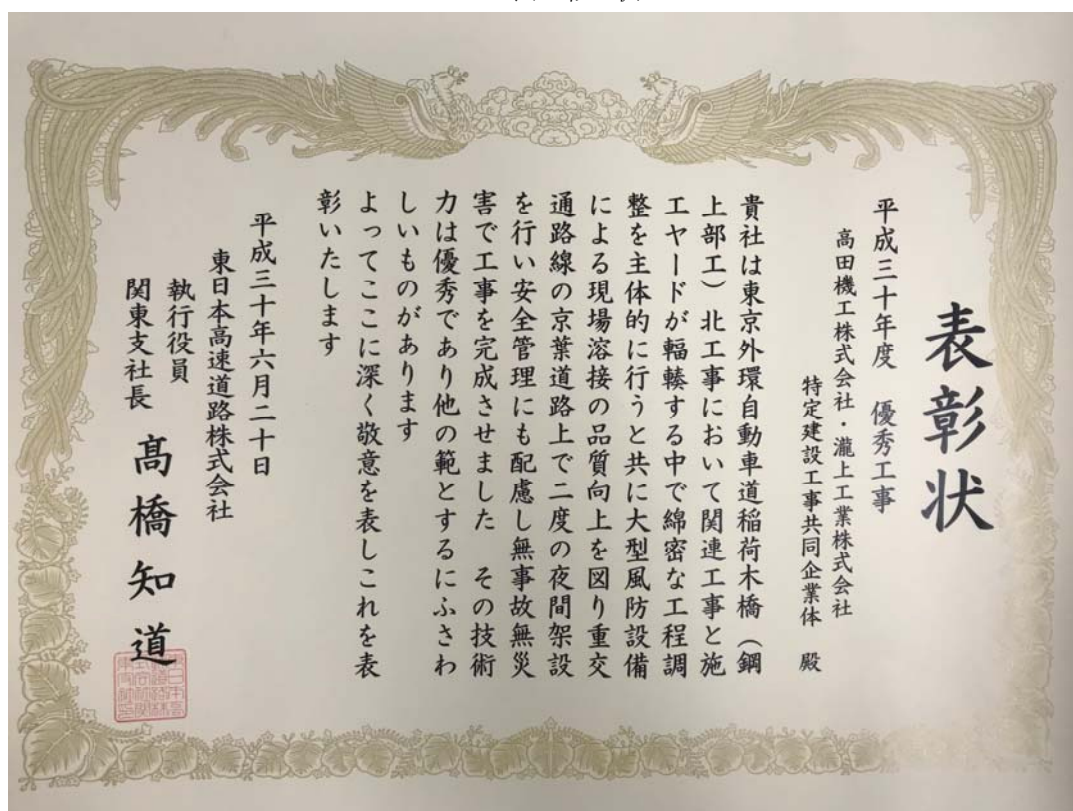 表彰状
平成三十年度 優秀工事
高田機工株式会社・瀧上工業株式会社
特定建設工事共同企業体 殿
貴社は東京外環自動車道稲荷木橋（鋼
上部工）北工事において関連工事と施
工ヤードが輻輳する中で綿密な工程調
整を主体的に行うと共に大型風防設備
による現場溶接の品質向上を図り重交
通路線の京葉道路上で二度の夜間架設
を行い安全管理にも配慮し無事故無災
害で工事を完成させました その技術
力は優秀であり他の範とするにふさわ
しいものがあります
よってここに深く敬意を表しこれを表
彰いたします
平成三十年六月二十日
東日本高速道路株式会社
執行役員
関東支社長 髙橋知道